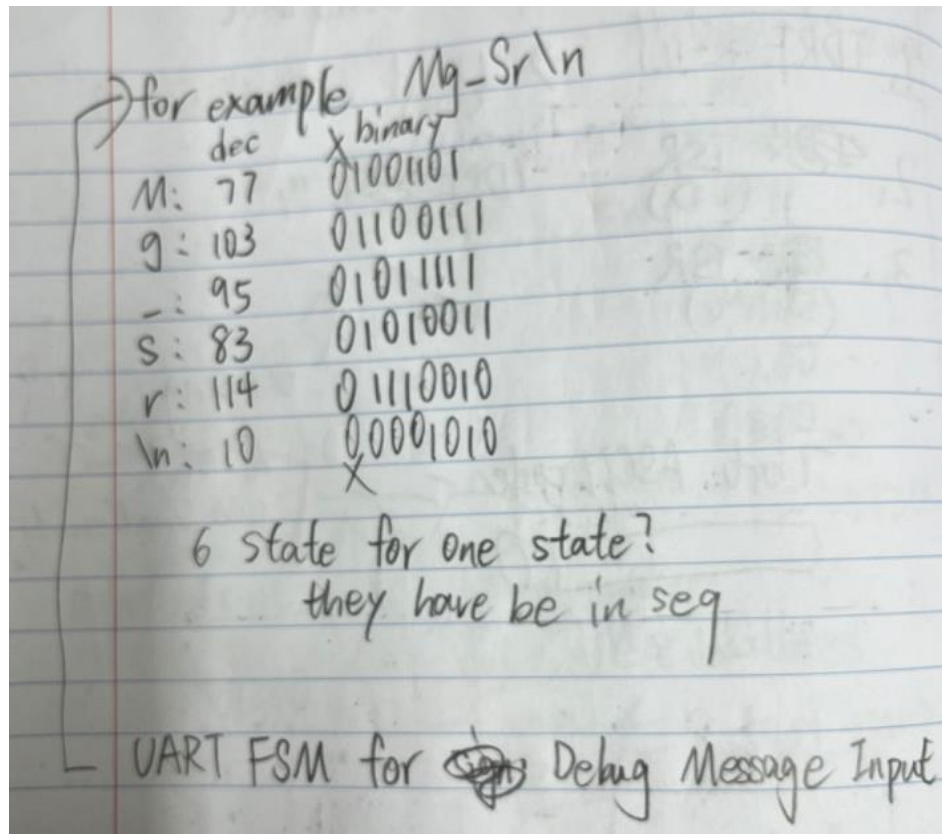 for example Mg_Sr\n
dec x binary
M: 77 01001101
g: 103 01100111
_: 95 01011111
S: 83 01010011
r: 114 01110010
\n: 10 00001010
x
6 state for one state?
they have be in seq
UART FSM for Debug Message Input